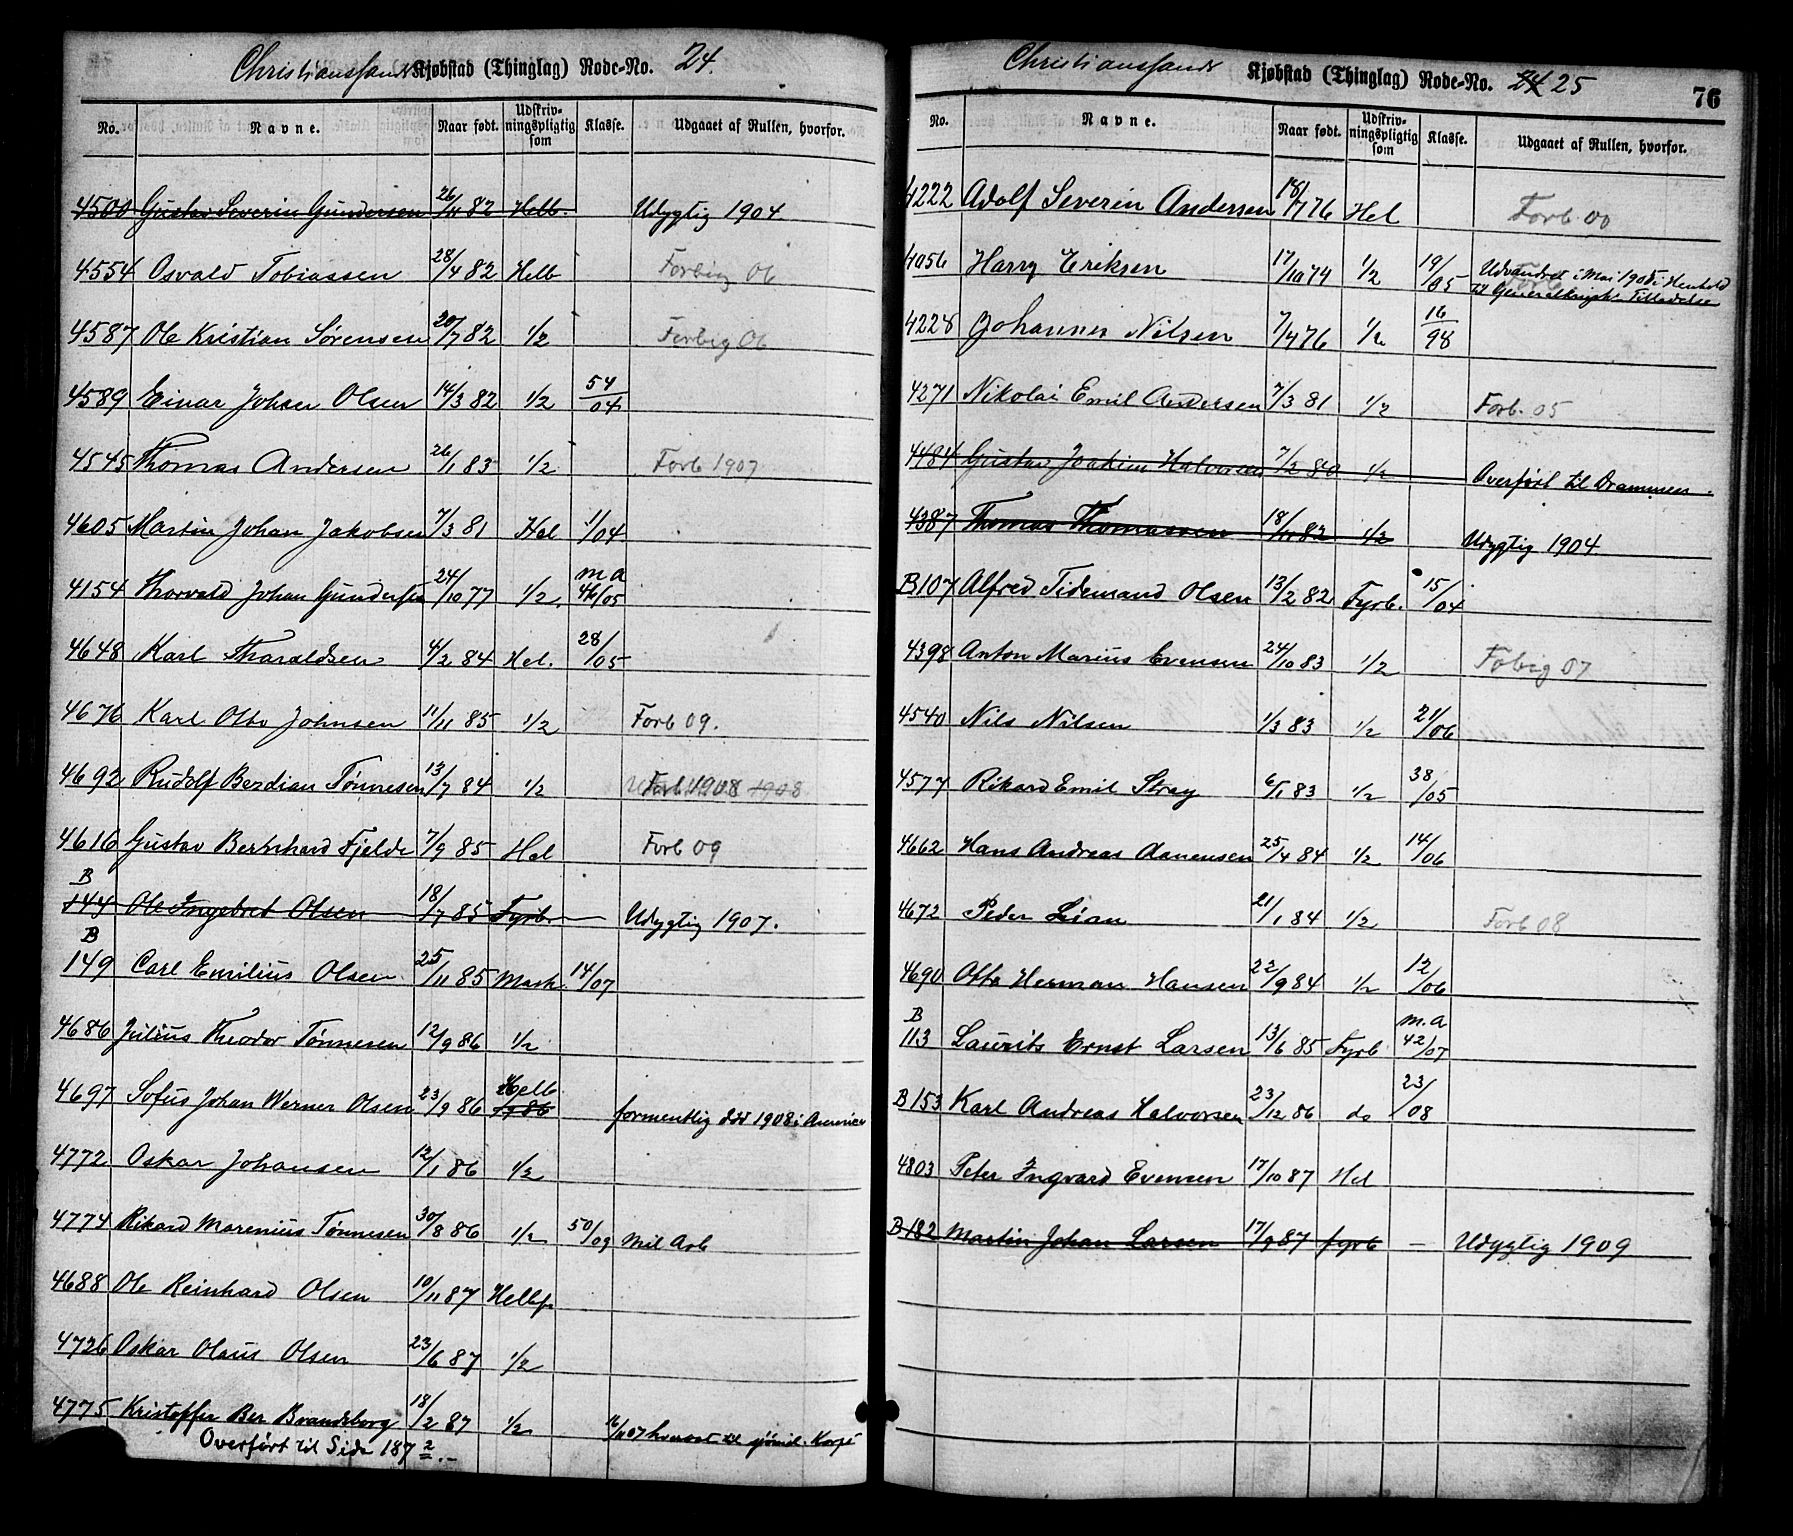 Christianssands Kjøbstad (Thinglag) Rode-No. 24.
No. Navne. Naar født. Udskriv-ningspligtig som Klasse. Udgaaet af Rullen, hvorfor.
4500 Gustav Severin Gundersen 26/11 82 Helb. Udygtig 1904
4554 Osvald Tobiassen 28/4 82 Helb Forbig 06
4587 Ole Kristian Sørensen 20/7 82 1/2 Forbig 06
4589 Einar Johan Olsen 14/3 82 1/2 54/04
4545 Thomas Andersen 26/1 83 1/2 Forb 1907
4605 Martin Johan Jakobsen 7/3 81 Hel 1/04
4154 Thorvald Johan Gundersen 24/10 77 1/2 m a 46/05
4648 Karl Tharaldsen 4/2 84 Hel. 28/05
4676 Karl Otto Johnsen 11/11 85 1/2 Forb 09.
4692 Rudolf Berdian Tønnesen 13/7 84 1/2 Forb 1908
4616 Gustav Bernhard Fjelde 7/9 85 Hel Forb 09
B 144 Ole Ingebret Olsen 18/7 85 Fyrb. Udygtig 1907.
B 149 Carl Emilius Olsen 25/11 85 Mask. 14/07
4686 Julius Theodor Tønnesen 12/9 86 1/2
4697 Sofus Johan Werner Olsen 23/9 86 Helb formentlig död 1908 i America
4772 Oskar Johansen 12/1 86 1/2
4774 Rikard Marenius Tønnesen 30/8 86 1/2 50/09 Mil Arb
4688 Ole Reinhard Olsen 10/11 87 Helbf
4726 Oskar Olaus Olsen 23/6 87 1/2
4775 Kristoffer Ber Brandsborg 18/2 87 1/2 til sjömil. Korps
Overført til Side 187 2.-
Christianssands Kjøbstad (Thinglag) Rode-No. 24 25
76
No. Navne. Naar født. Udskriv-ningspligtig som Klasse. Udgaaet af Rullen, hvorfor.
4222 Adolf Severin Andersen 18/7 76 Hel Forb. 00
4056 Harry Eriksen 17/10 74 1/2 19/05 Udvandret i Mai 1905 i Henhold til Generalkrigsk. Tilladelse
4228 Johannes Nilsen 7/4 76 1/2 16/98
4271 Nikolai Emil Andersen 7/3 81 1/2 Forb. 05
4484 Gustav Joakim Halvorsen 7/2 80 1/2 Overført til Drammen.
4387 Thomas Thomassen 18/11 82 1/2 Udygtig 1904
B 107 Alfred Tidemand Olsen 13/2 82 Fyrb. 15/04
4398 Anton Marius Evensen 24/10 83 1/2 Fobig 07
4540 Nils Nilsen 1/3 83 1/2 21/06
4577 Rikard Emil Stray 6/1 83 1/2 38/05
4662 Hans Andreas Aanensen 25/4 84 1/2 14/06
4672 Peder Lian 21/1 84 1/2 Forb 08
4690 Otto Herman Hansen 22/9 84 1/2 12/06
B 113 Laurits Ernst Larsen 13/6 85 Fyrb m.a 42/07
B 153 Karl Andreas Halvorsen 23/12 86 do 23/08
4803 Peter Ingvard Evensen 17/10 87 Hel
B 182 Martin Johan Larsen 17/9 87 fyrb — Udygtig 1909